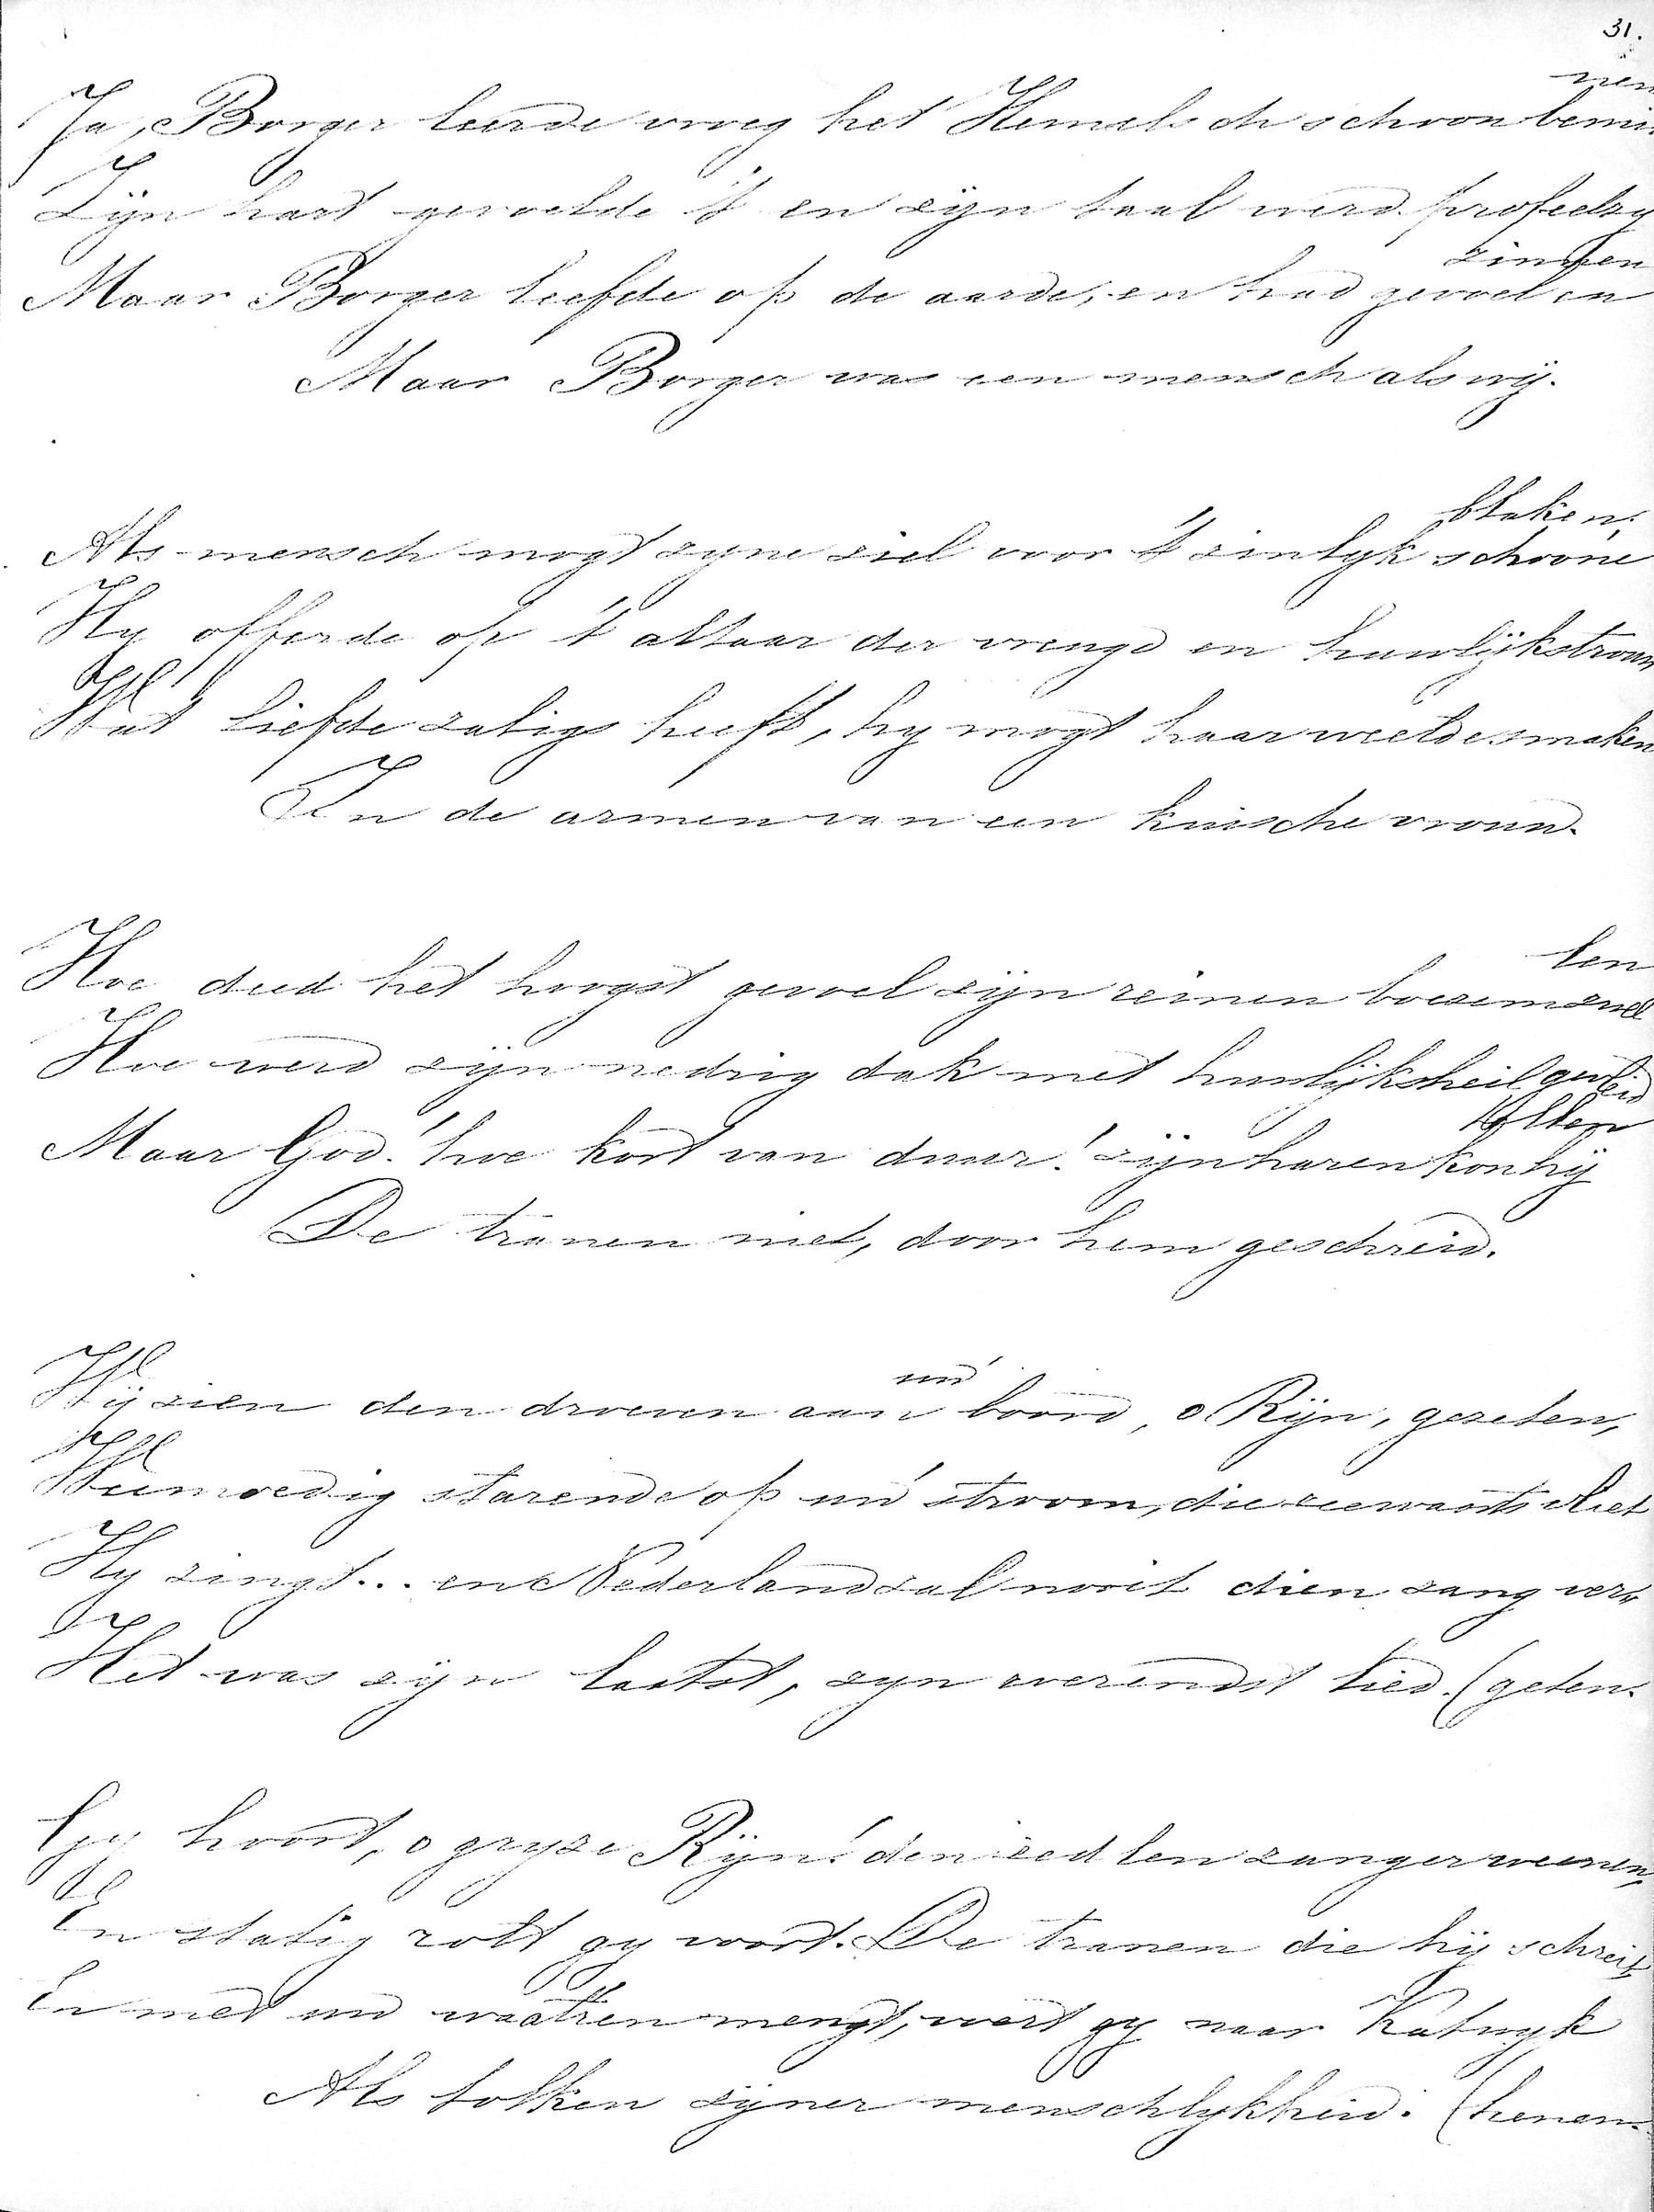 31.
nen
Ja, Borger leerde vroeg het Hemelsch schoon bemin
Zijn hart gevoelde 't en zijn taal werd profeetsy
zinnen
Maar Borger leefde op de aarde, en had gevoel en
Maar Borger was een mensch als wij.
blaken;
Als mensch mogt zyne ziel voor 't zinlyk schoone
Hy offerde op 't altaar der vreugd en huwlijkstrouw
Wat liefde zaligs heeft, hy mogt haar weelde smaken
In de armen van een kuische vrouw.
len
Hoe deed het hoogst gevoel zijn reinen boezem zwel
Hoe werd zijn nedrig dak met huwlijksheil geweid
tellen
Maar God! hoe kort van duur! zijn haren kon hij
De tranen niet, door hem geschreid.
uw'
Wij zien den droeven aan boord, o Rijn, gezeten,
Weemoedig starende op uw' stroom, die zeewaarts vliet
Hy zingt... en Nederland zal nooit dien zang ver-
Het was zijn laatst, zyn roerendst lied. (geten.
Gy hoort, o gryze Rijn! den eedlen zanger weenen,
En statig rolt gy voort. De tranen die hij schreit
En met uw waatren mengt, voert gy naar Katwyk
Als tolken zijner menschlykheid. (henen.